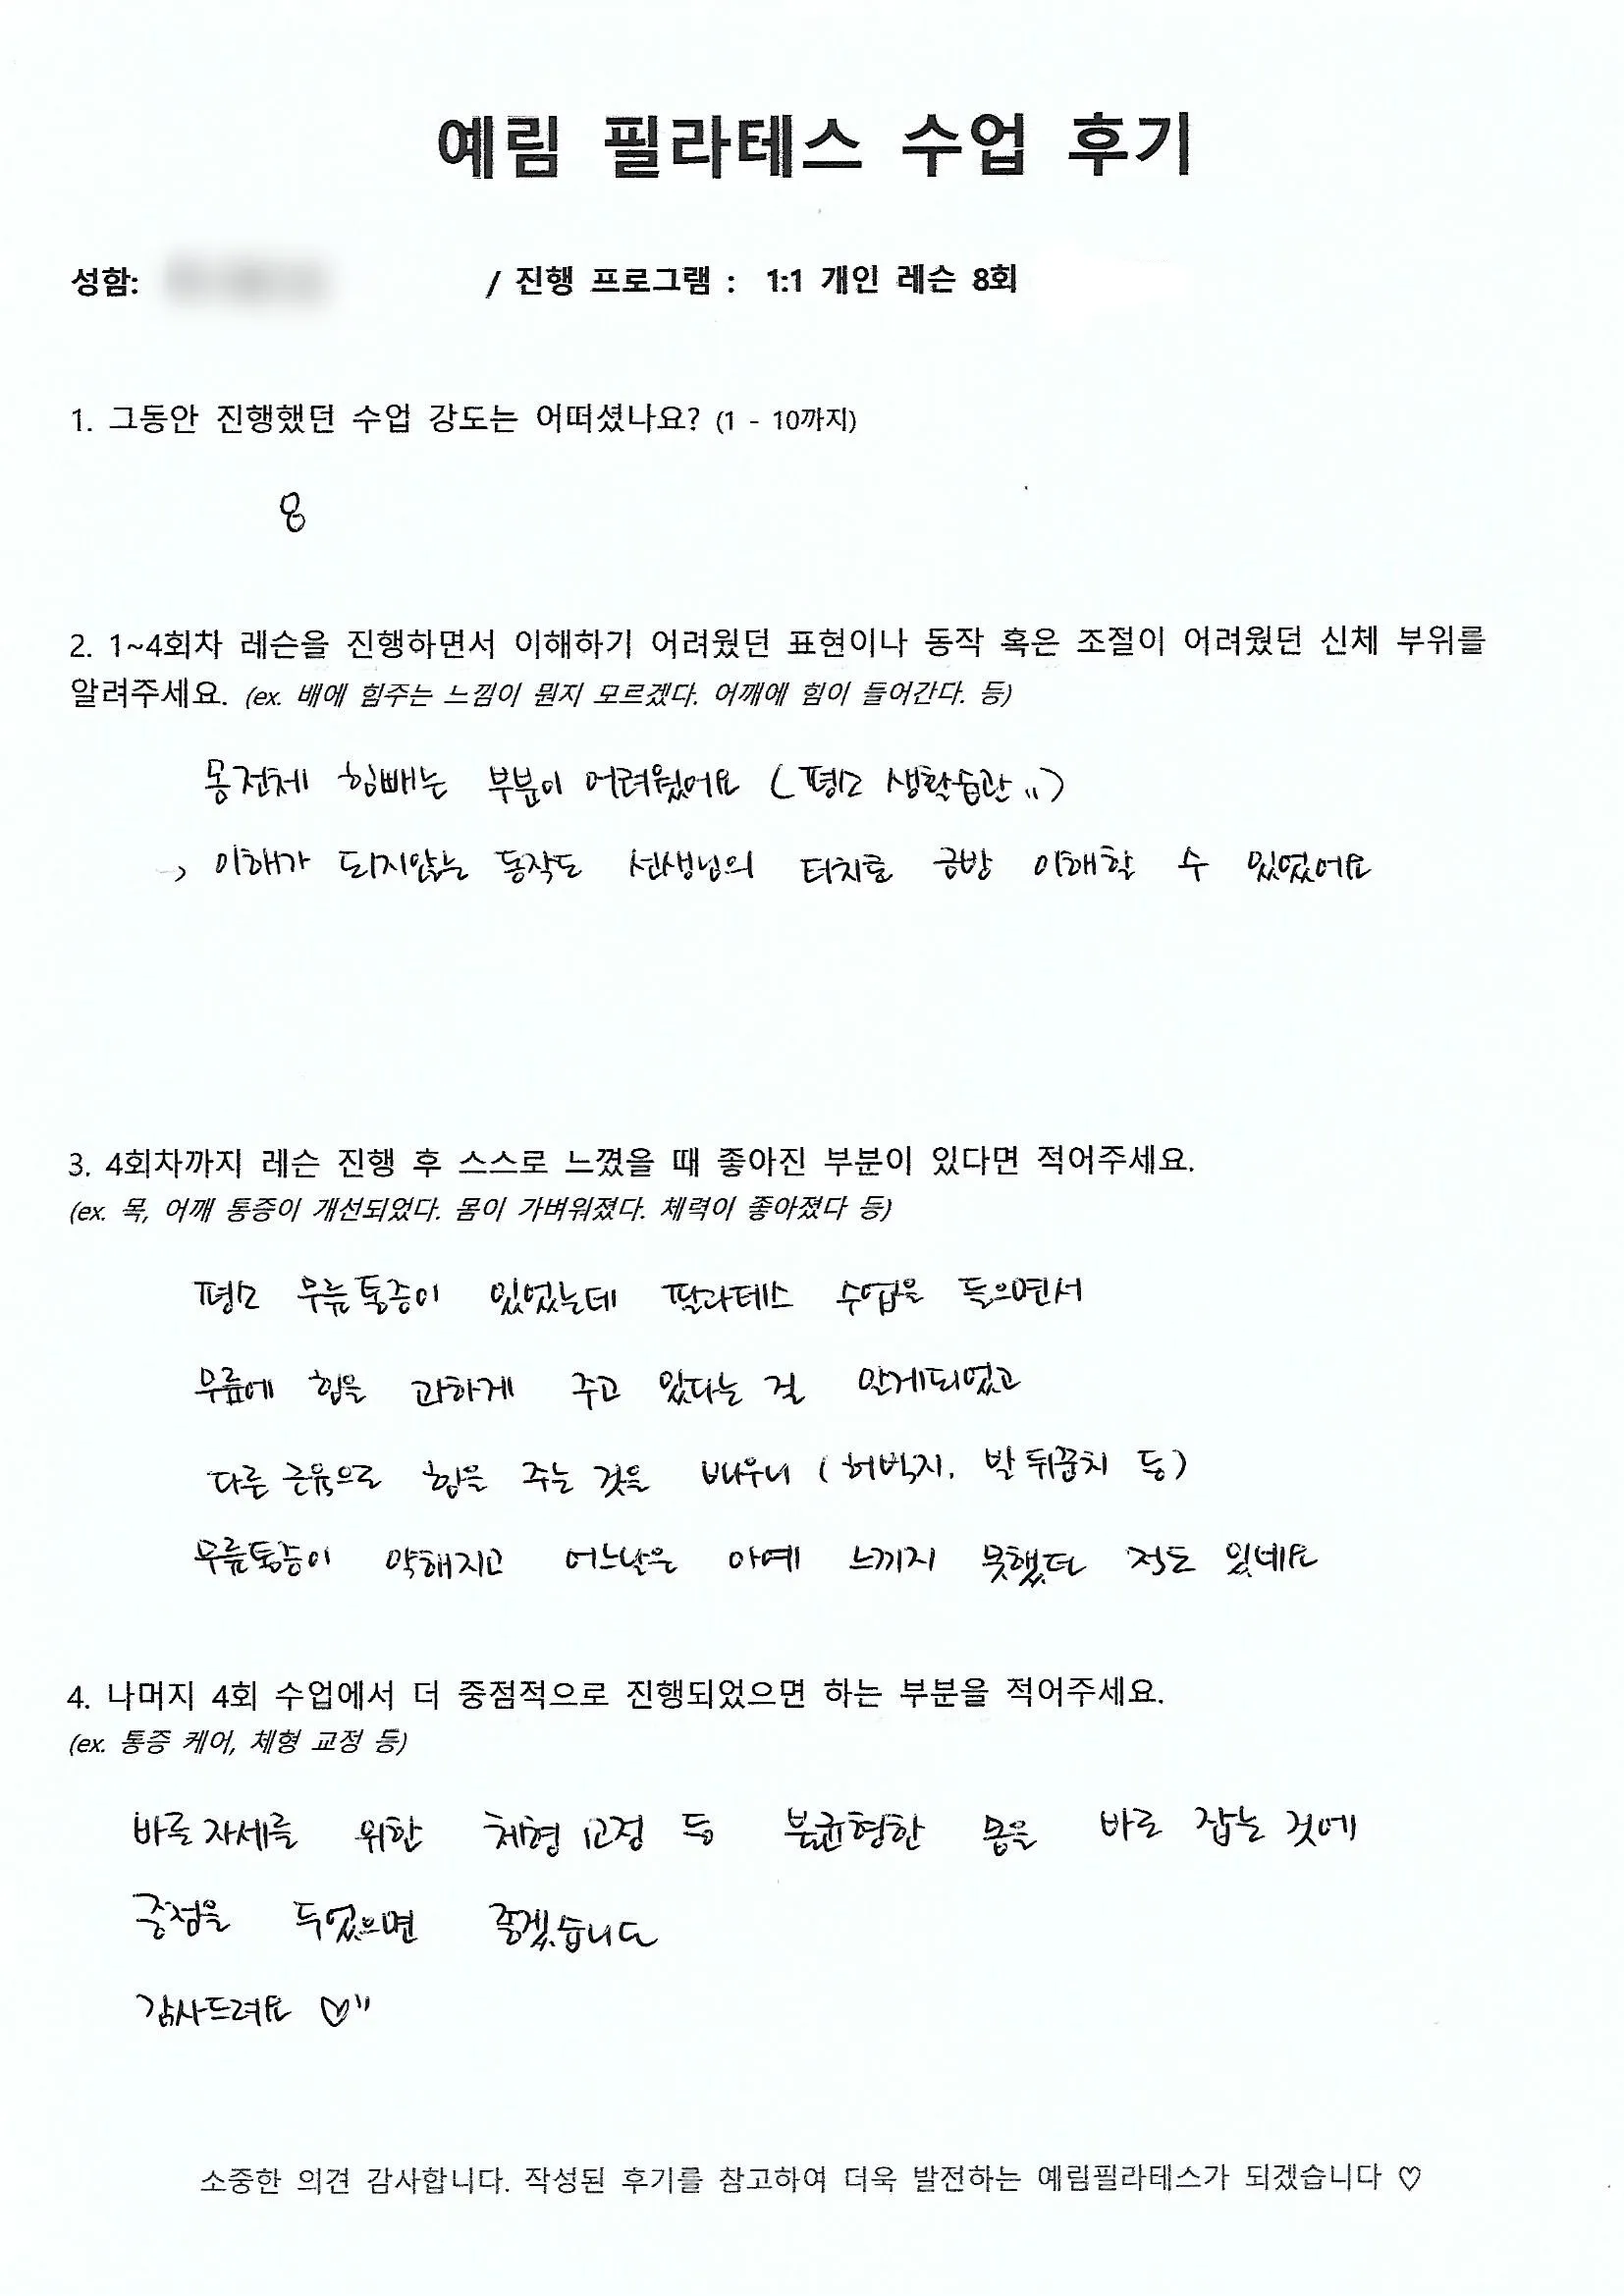 예림 필라테스 수업 후기
성함: / 진행 프로그램 : 1:1 개인 레슨 8회
1. 그동안 진행했던 수업 강도는 어떠셨나요? (1 - 10까지)
8
2. 1~4회차 레슨을 진행하면서 이해하기 어려웠던 표현이나 동작 혹은 조절이 어려웠던 신체 부위를
알려주세요. (ex. 배에 힘주는 느낌이 뭔지 모르겠다. 어깨에 힘이 들어간다. 등)
몸전체 힘빼는 부분이 어려웠어요 (평소 생활습관..)
→ 이해가 되지않는 동작도 선생님의 터치로 금방 이해할 수 있었어요
3. 4회차까지 레슨 진행 후 스스로 느꼈을 때 좋아진 부분이 있다면 적어주세요.
(ex. 목, 어깨 통증이 개선되었다. 몸이 가벼워졌다. 체력이 좋아졌다 등)
평소 무릎통증이 있었는데 필라테스 수업을 들으면서
무릎에 힘을 과하게 주고 있다는 걸 알게되었고
다른 근육으로 힘을 주는 것을 배우니 (허벅지, 발 뒤꿈치 등)
무릎통증이 약해지고 어느날은 아예 느끼지 못했던 적도 있네요
4. 나머지 4회 수업에서 더 중점적으로 진행되었으면 하는 부분을 적어주세요.
(ex. 통증 케어, 체형 교정 등)
바른 자세를 위한 체형 교정 등 불균형한 몸을 바로 잡는 것에
중점을 두었으면 좋겠습니다
감사드려요 ♡"
소중한 의견 감사합니다. 작성된 후기를 참고하여 더욱 발전하는 예림필라테스가 되겠습니다 ♡